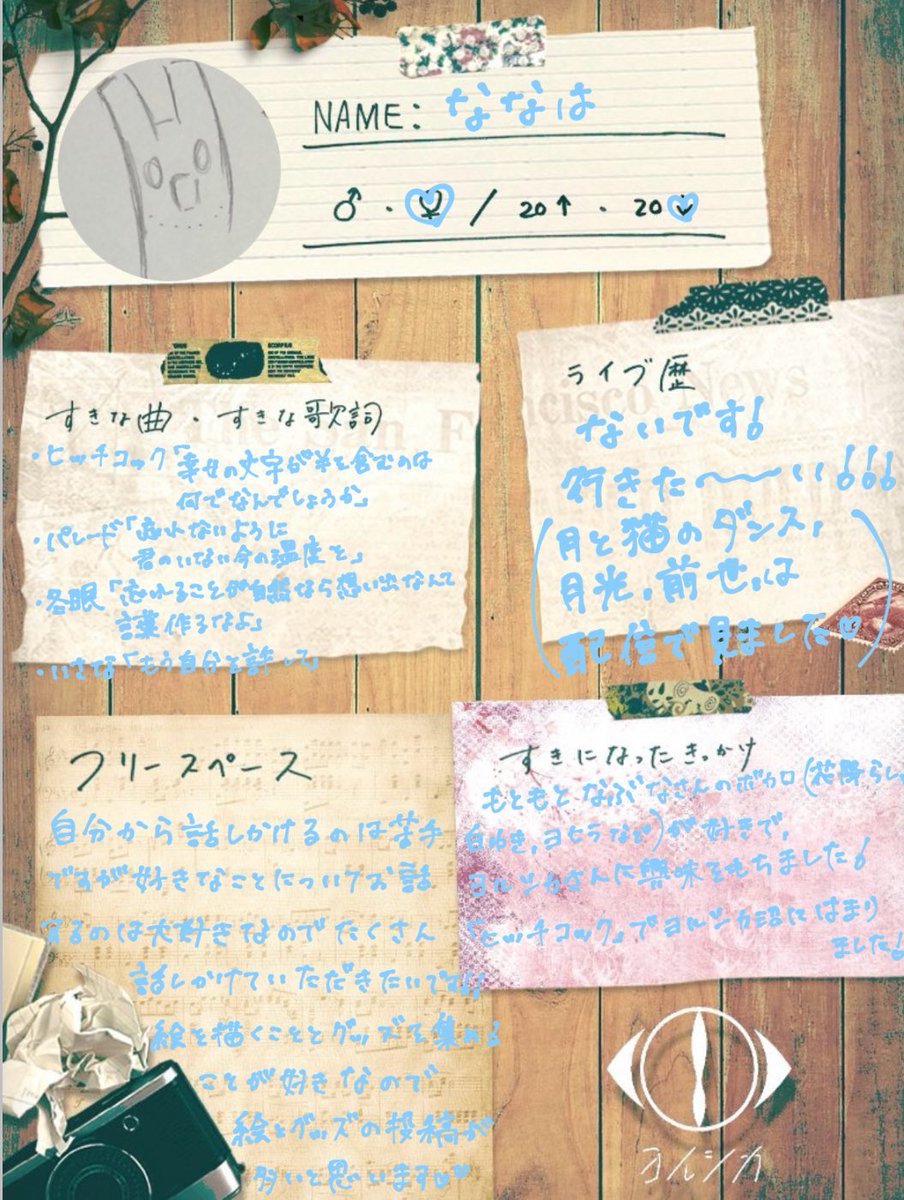 NAME: ななは
♂・♀ / 20↑・20↓
すきな曲・すきな歌詞
・ヒッチコック「幸せの文字が￥を含むのは
何でなんでしょうか」
・パレード「忘れないように
君のいない今の温度を」
・冬眠「忘れることが自然なら想い出なんて
言葉作るなよ」
・いさな「もう自分を許して」
ライブ歴
ないです!
行きた〜〜い!!!
(月と猫のダンス,
月光,前世,は
配信で見ました♡)
フリースペース
自分から話しかけるのは苦手
ですが好きなことについてお話
するのは大好きなのでたくさん
話しかけていただきたいです!!
絵を描くこととグッズを集める
ことが好きなので
絵とグッズの投稿が
多いと思います♡♡
すきになったきっかけ
もともとなぶなさんのボカロ(花降らし,
白ゆき,ヨヒラなど)が好きで,
ヨルシカさんに興味をもちました!
「ヒッチコック」でヨルシカ沼にはまり
ました!
ヨルシカ